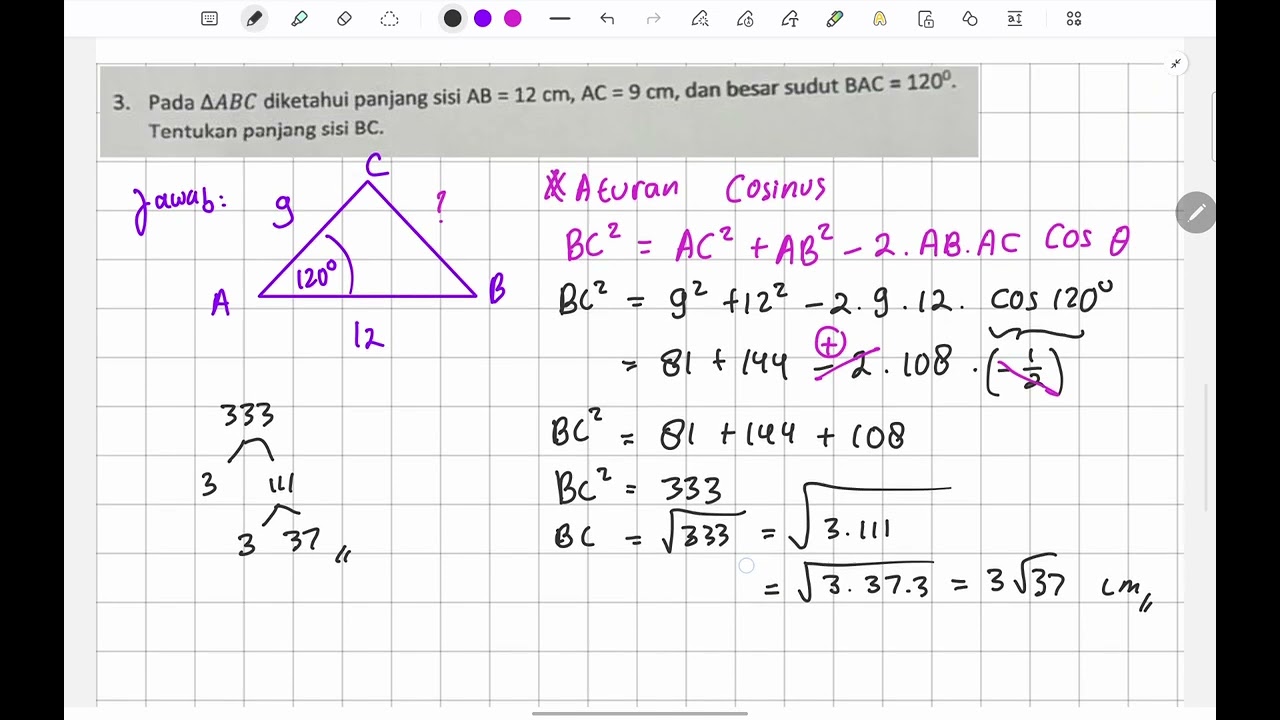 3. Pada ΔABC diketahui panjang sisi AB = 12 cm, AC = 9 cm, dan besar sudut BAC = 120⁰.
Tentukan panjang sisi BC.
Jawab:
C
9
?
120°
A
B
12
* Aturan Cosinus
BC² = AC² + AB² − 2.AB.AC Cos θ
BC² = 9² + 12² − 2.9.12. cos 120°
= 81 + 144 − 2.108.(−1/2)
+
BC² = 81 + 144 + 108
BC² = 333
BC = √333 = √3.111
= √3.37.3 = 3√37 cm
333
3 111
3 37